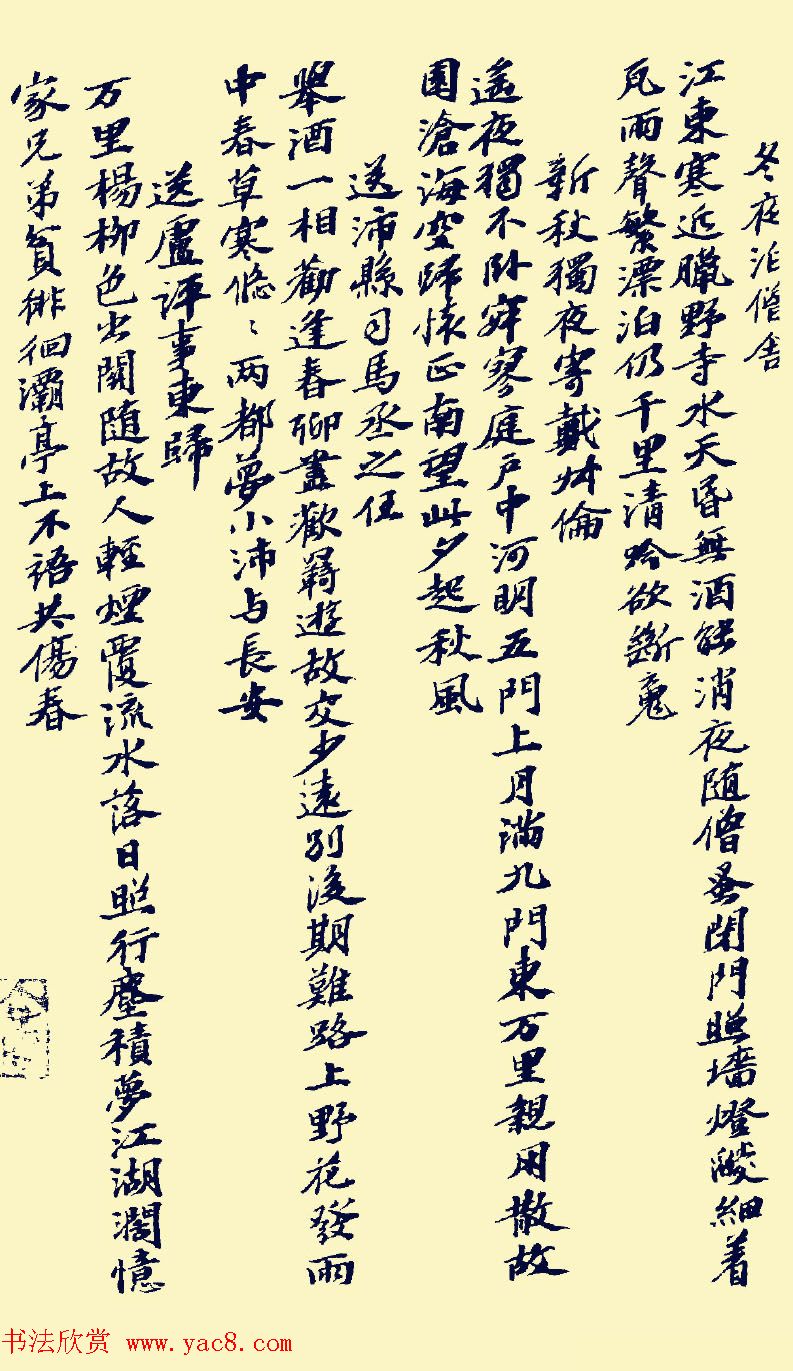 冬夜泊僧舍
江東寒近臘野寺水天昏無酒能消夜随僧蚤閉門照墻燈燄細着
瓦雨聲繁漂泊仍千里清吟欲斷魂
新秋獨夜寄戴叔倫
遥夜獨不卧寂寥庭户中河明五門上月满九門東万里親用散故
園滄海空歸懷正南望此夕起秋風
送沛縣司馬丞之任
舉酒一相勸逢春聊盡歡羇遊故交少遠别後期難路上野花發雨
中春草寒悠〻两都夢小沛与長安
送盧評事東歸
万里楊柳色出關随故人輕煙覆流水落日照行塵積夢江湖濶憶
家兄弟貧徘徊灞亭上不語共傷春
书法欣赏 www.yac8.com